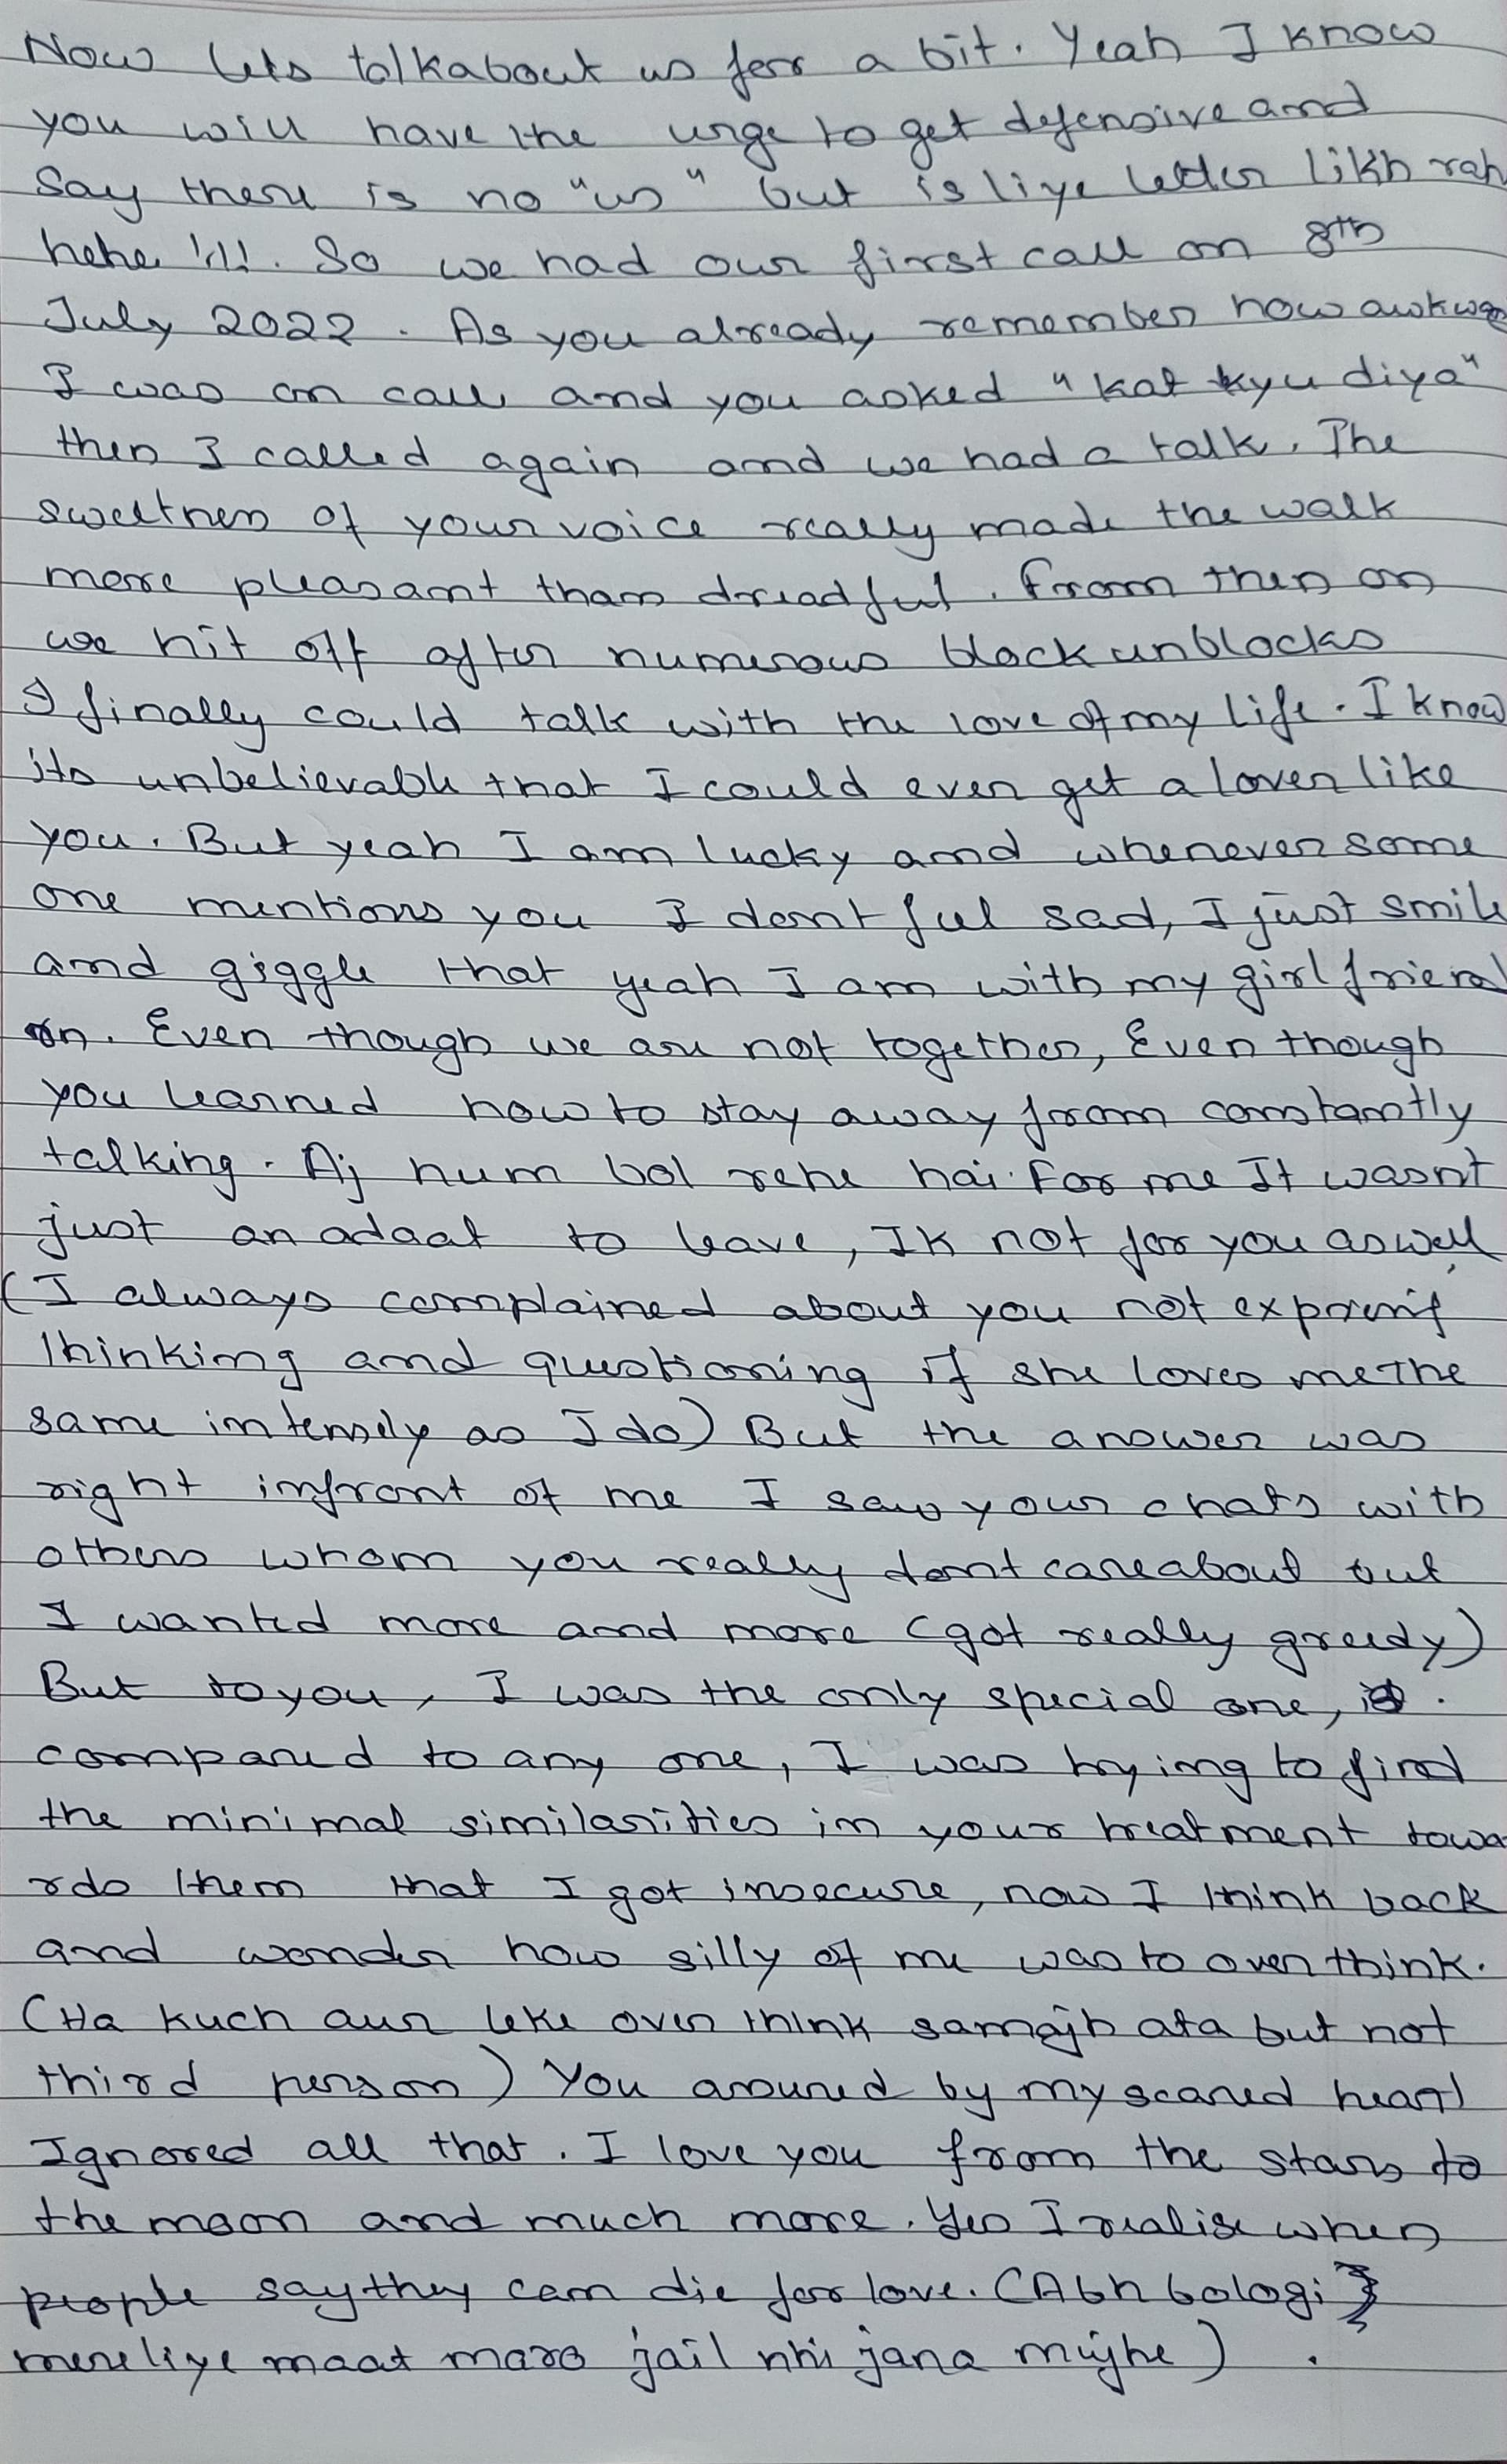 Now lets talkabout us for a bit. Yeah I know
you will have the urge to get defensive and
say there is no "us" but is liye letter likh rah
hehe !!!!. So we had our first call on 8th
July 2022. As you already remember how awkwa
I was on call and you asked "kat kyu diya"
then I called again and we had a talk. The
sweetness of your voice really made the walk
more pleasant than dreadful. From then on
we hit off after numerous block unblocks
I finally could talk with the love of my life. I know
its unbelievable that I could even get a lover like
you. But yeah I am lucky and whenever some
one mentions you I dont feel sad, I just smile
and giggle that yeah I am with my girlfriend
on. Even though we are not together, Even though
you learned how to stay away from constantly
talking. Aj hum bol rehe hai. For me It wasnt
just an adaat to leave, Ik not for you aswell
(I always complained about you not
thinking and questioning if she loves me the
same intensely as I do) But the answer was
right infront of me I saw your chats with
others whom you really dont care about but
I wanted more and more (got really greedy)
But to you, I was the only special one,
compared to any one, I was trying to find
the minimal similarities in your treatment towa
rds them that I got insecure, now I think back
and wonder how silly of me was to over think.
(Ha kuch aur leke over think samajh ata but not
third person) You assured by my scared heart
Ignored all that. I love you from the stars to
the moon and much more. Yes I realise when
people say they can die for love. (Abh bologi
mere liye maat maro jail nhi jana mujhe) .